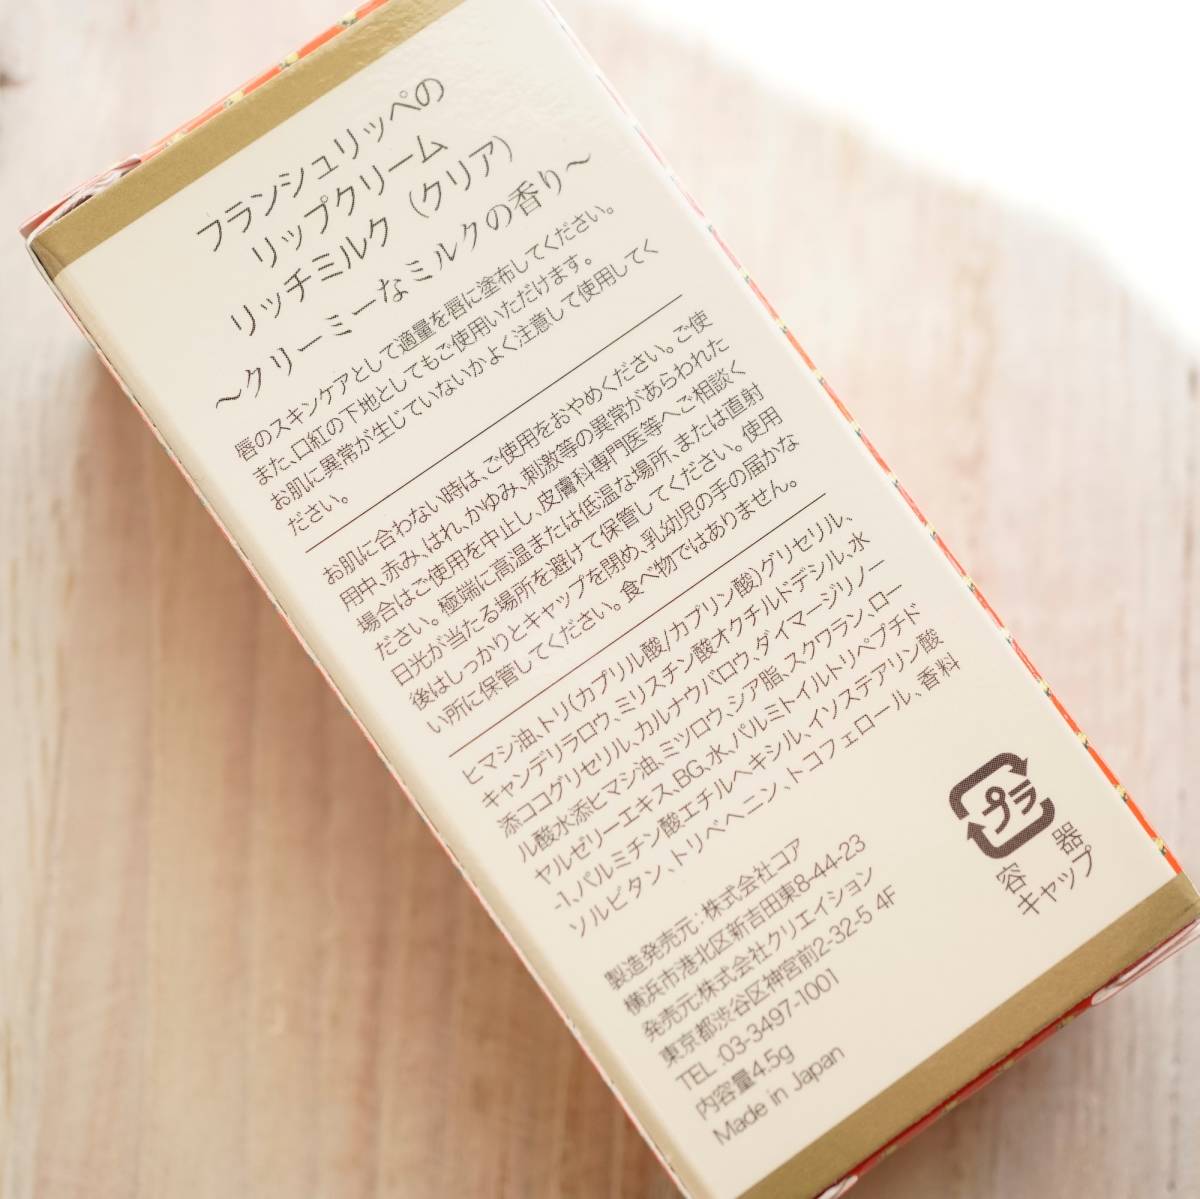 フランシュリッペの
リップクリーム
リッチミルク（クリア）
～クリーミーなミルクの香り～
唇のスキンケアとして適量を唇に塗布してください。
また、口紅の下地としてもご使用いただけます。
お肌に異常が生じていないかよく注意して使用してく
ださい。
お肌に合わない時は、ご使用をおやめください。ご使
用中、赤み、はれ、かゆみ、刺激等の異常があらわれた
場合はご使用を中止し、皮膚科専門医等へご相談く
ださい。極端に高温または低温な場所、または直射
日光が当たる場所を避けて保管してください。使用
後はしっかりとキャップを閉め、乳幼児の手の届かな
い所に保管してください。食べ物ではありません。
ヒマシ油、トリ(カプリル酸/カプリン酸)グリセリル、
キャンデリラロウ、ミリスチン酸オクチルドデシル、水
添ココグリセリル、カルナウバロウ、ダイマージリノー
ル酸水添ヒマシ油、ミツロウ、シア脂、スクワラン、ロー
ヤルゼリーエキス、BG、水、パルミトイルトリペプチド
-1、パルミチン酸エチルヘキシル、イソステアリン酸
ソルビタン、トリベヘニン、トコフェロール、香料
製造発売元：株式会社コア
横浜市港北区新吉田東8-44-23
発売元:株式会社クリエイション
東京都渋谷区神宮前2-32-5 4F
TEL :03-3497-1001
内容量4.5g
Made in Japan
プラ
容器
キャップ